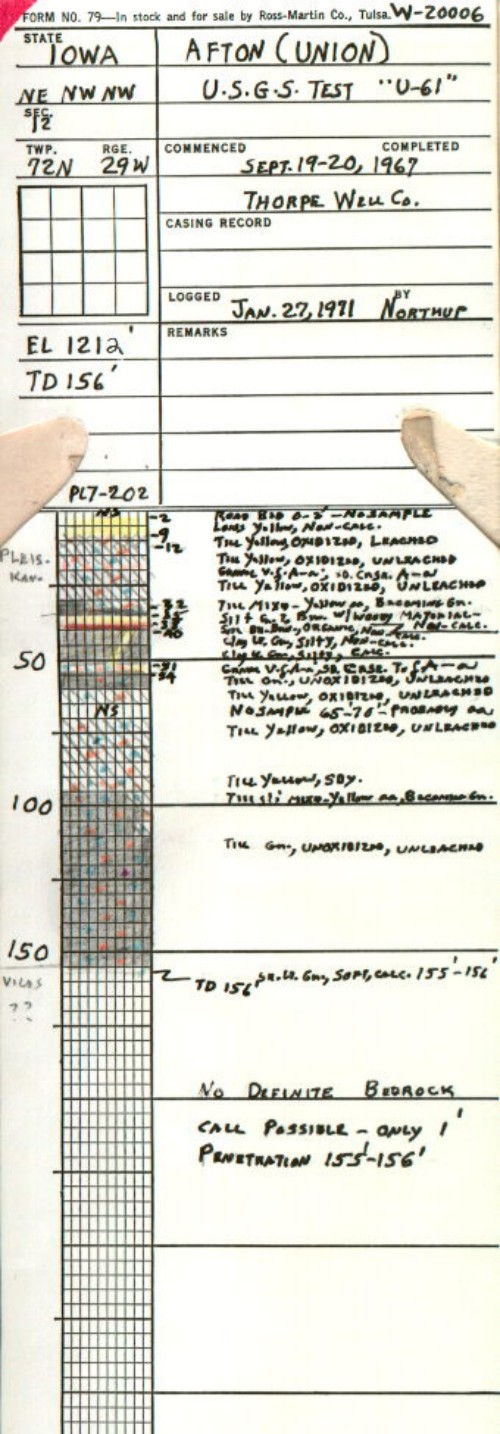 FORM NO. 79—In stock and for sale by Ross-Martin Co., Tulsa. W-20006
STATE
IOWA
AFTON (UNION)
NE NW NW
U.S.G.S. TEST "U-61"
SEC.
12
TWP. RGE.
72N 29W
COMMENCED COMPLETED
SEPT. 19-20, 1967
THORPE WELL CO.
CASING RECORD
LOGGED BY
JAN. 27, 1971 NORTHUP
EL 1212'
REMARKS
TD 156'
PL7-202
NS
-2
ROAD BED 0-2' - NO SAMPLE
LOESS YELLOW, NON-CALC.
-9
TILL YELLOW, OXIDIZED, LEACHED
-12
PLEIS.
KAN.
TILL YELLOW, OXIDIZED, UNLEACHED
TILL YELLOW, OXIDIZED, UNLEACHED
TILL MIXD - YELLOW AA, BECOMING GN.
W/ WOODY MATERIAL -
NON-CALC.
-40
CLAY LT. GN, SILTY, NON-CALC.
CLAY LT. GN, SILTY, CALC.
50
-51
-54
TILL GN., UNOXIDIZED, UNLEACHED
TILL YELLOW, OXIDIZED, UNLEACHED
NS
NO SAMPLE 65'-70' - PROBABLY AA
TILL YELLOW, OXIDIZED, UNLEACHED
TILL YELLOW, SDY.
100
MIXD - YELLOW AA, BECOMING GN.
TILL GN., UNOXIDIZED, UNLEACHED
150
SOFT, CALC. 155'-156'
TD 156'
??
NO DEFINITE BEDROCK
CALL POSSIBLE - ONLY 1'
PENETRATION 155'-156'